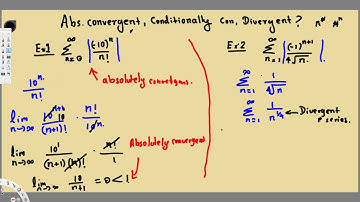 Abs. convergent, Conditionally Con, Divergent?
Ex1 ∞ Σ n=0 |(-10)^n / n!|
absolutely convergent.
10^n / n!
lim n→∞ 10^{n+1} / (n+1)! · n! / 10^n
lim n→∞ 10^1 / (n+1)(n)! · n! / 1
Absolutely convergent
lim n→∞ 10 / n+1 = 0 < 1
Ex2 ∞ Σ n=1 |(-1)^{n+1} / ∜n|
∞ Σ n=1 1 / ∜n
∞ Σ n=1 1 / n^{1/4} ← Divergent
P series.